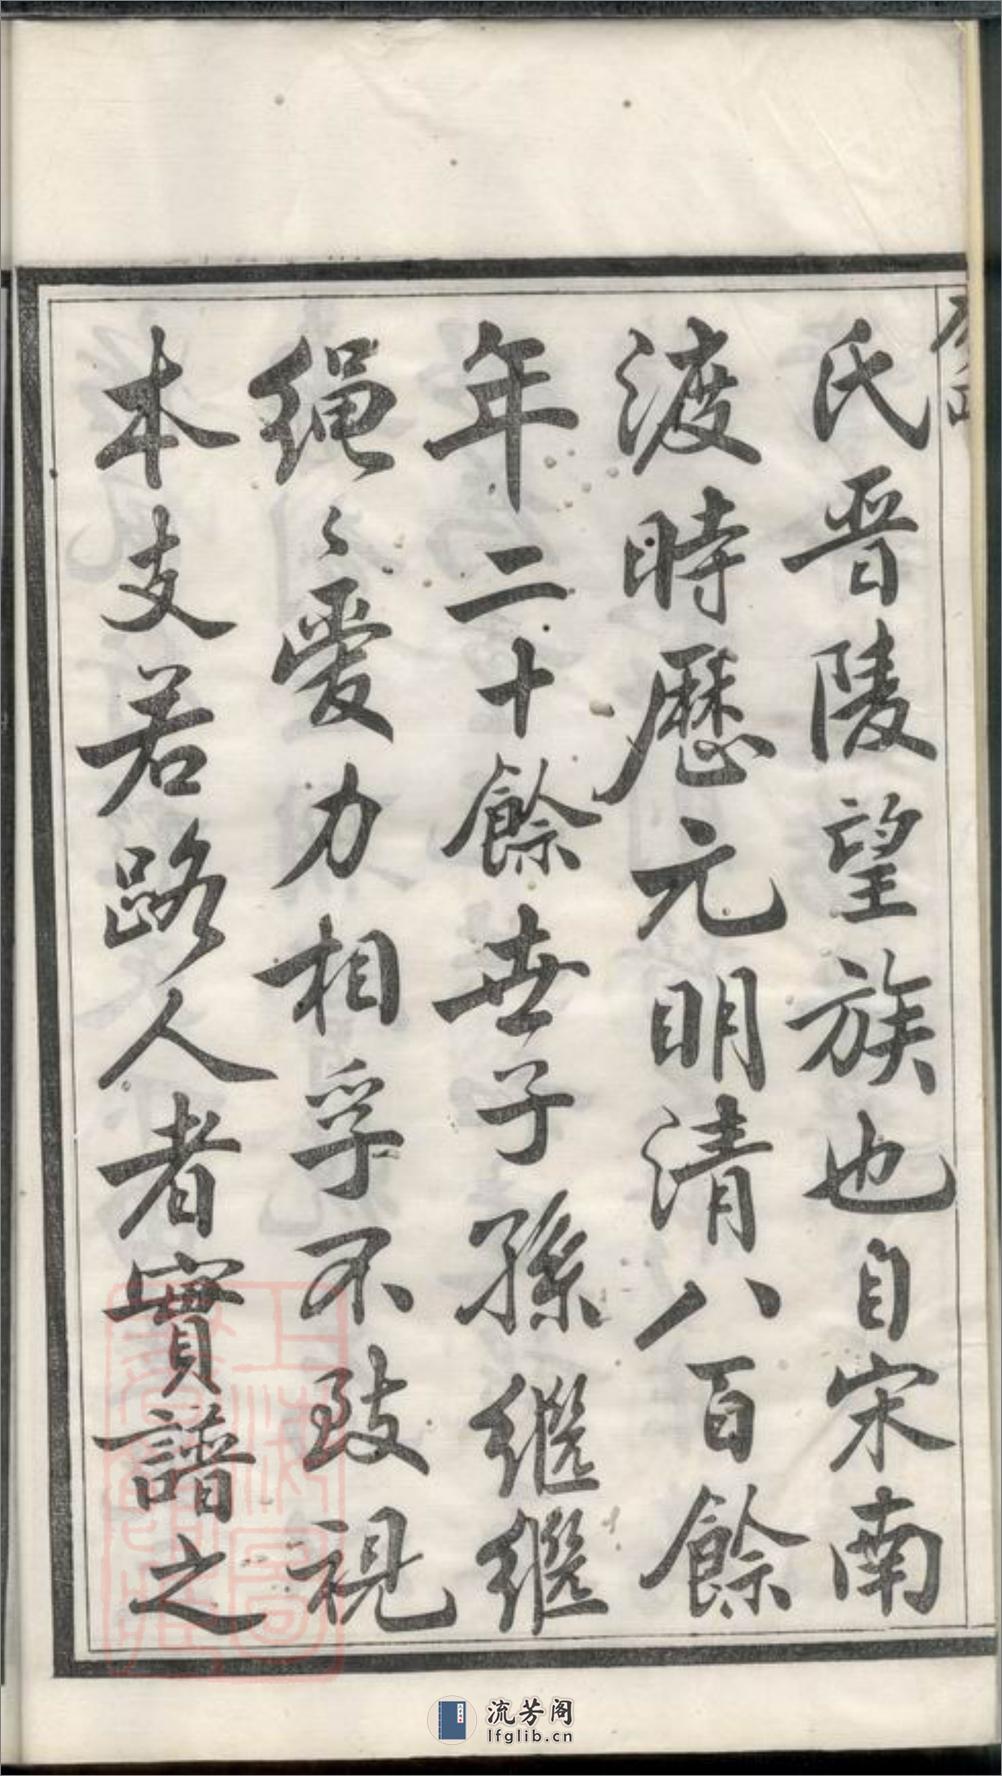 氏晉陵望族也自宋南
渡時歷元明清八百餘
年二十餘世子孫繼繼
繩〻愛力相孚不致視
本支若路人者實譜之
流芳阁
lfglib.cn